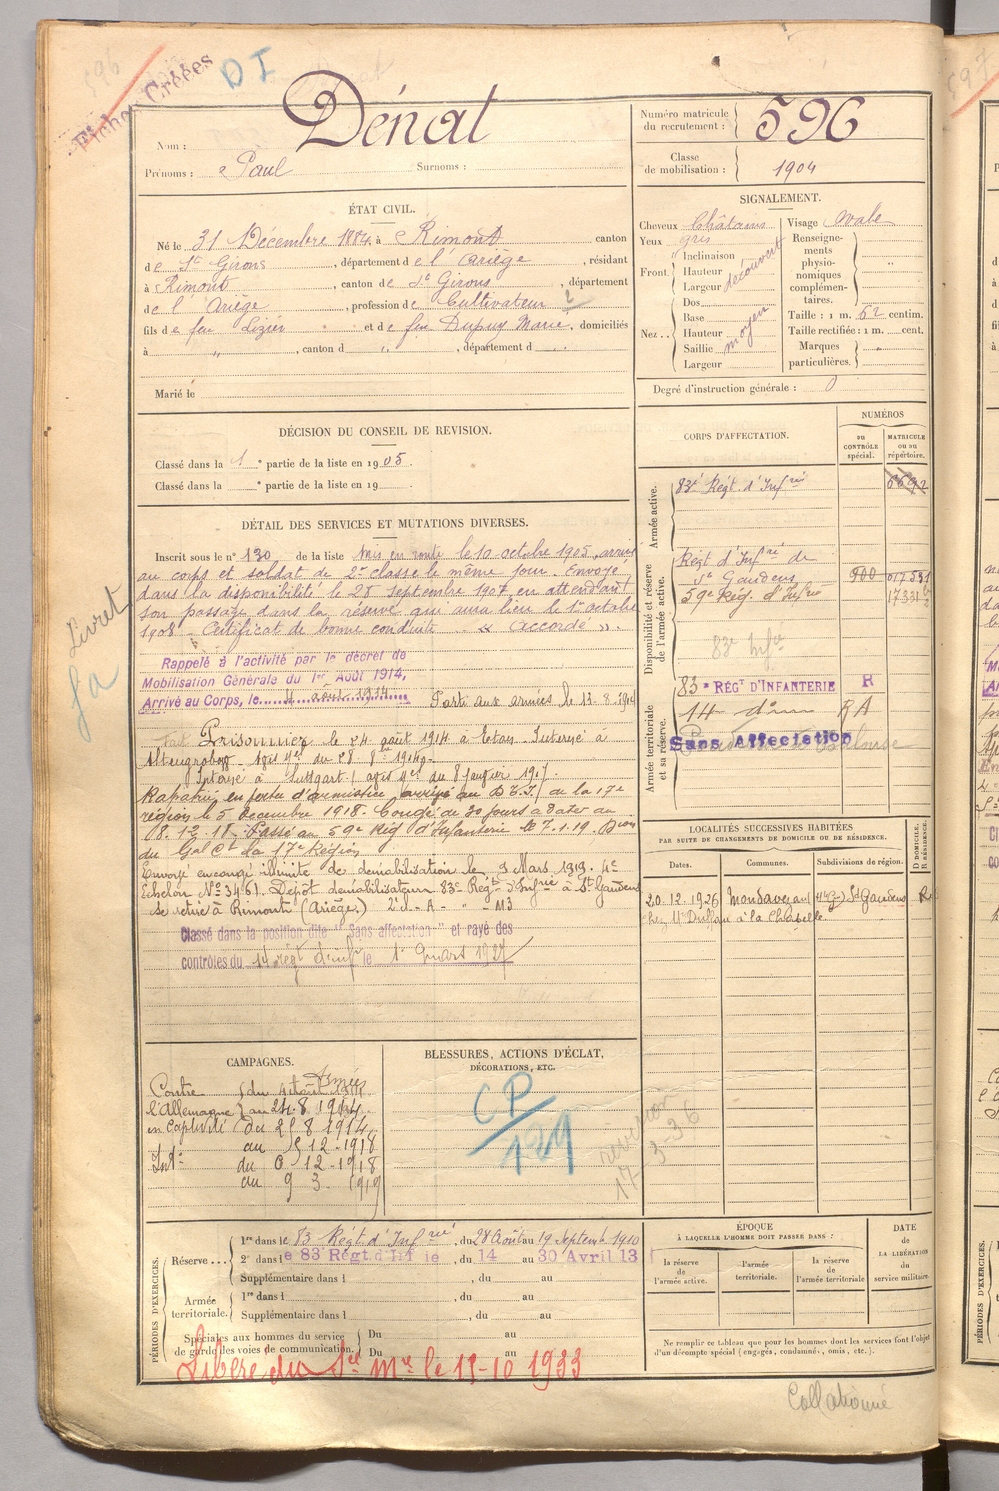 Fiches Créées
DI
Nom : Dénat
Prénoms : Paul Surnoms :
Numéro matricule du recrutement : 596
Classe de mobilisation : 1904
ÉTAT CIVIL.
Né le 31 Décembre 1884, à Rimont canton
de St Girons, département de l'Ariège, résidant
à Rimont, canton de St Girons, département
de l'Ariège, profession de Cultivateur
fils de feu Lizier et de feu Dupuy Marie, domiciliés
à " , canton d " , département d
Marié le
SIGNALEMENT.
Cheveux Châtains
Yeux gris
Front. Inclinaison
Hauteur
Largeur
découvert
Nez.. Dos
Base
Hauteur
Saillie
Largeur
moyen
Visage ovale
Renseignements physionomiques complémentaires. "
Taille : 1 m. 62 centim.
Taille rectifiée : 1 m. cent.
Marques particulières. "
Degré d'instruction générale : 0
DÉCISION DU CONSEIL DE REVISION.
Classé dans la 1e partie de la liste en 1905.
Classé dans la e partie de la liste en 19 .
DÉTAIL DES SERVICES ET MUTATIONS DIVERSES.
Inscrit sous le n° 130 de la liste Mis en route le 10 octobre 1905, arrivé
au corps et soldat de 2e classe le même jour. Envoyé
dans la disponibilité le 28 septembre 1907 en attendant
son passage dans la réserve qui aura lieu le 1er octobre
1908. Certificat de bonne conduite « Accordé ».
Rappelé à l'activité par le décret de
Mobilisation Générale du 1er Août 1914,
Arrivé au Corps, le 4 août 1914 Parti aux armées le 13-8-1914
Fait Prisonnier le 24 août 1914 à Interné à
Altengrabow
Interné à Stuttgart du 8 Janvier 1917.
Rapatrié en fortu d'armistice arrivé au D.T.I. de la 17e
région le 5 décembre 1918. Congé de 30 jours à dater du
8.12.18. Passé au 59e Rég d'Infanterie le 7.1.19. Dion
du Gal Ct la 17e Région
Envoyé en congé illimité de démobilisation le 9 Mars 1919. 4e
Echelon No 3461. Dépôt démobilisateur 83e Regt d'Infrie à St Gaudens
se retire à Rimont (Ariège.)
Classé dans la position dite "Sans affectation" et rayé des
contrôles du 14 régt d'infie le 1er mars 1927
Livret
CORPS D'AFFECTATION.
NUMÉROS
au CONTRÔLE spécial.
MATRICULE ou au répertoire.
Armée active.
83e Régt. d'Infrie 6692
Disponibilité et réserve de l'armée active.
Régt d'Infrie de
St Gaudens 900
59e Rég. d'Infrie
83e Infie
83e RÉGT D'INFANTERIE R
Armée territoriale et sa réserve.
14 dº RA
Sans Affectation
LOCALITÉS SUCCESSIVES HABITÉES
PAR SUITE DE CHANGEMENTS DE DOMICILE OU DE RÉSIDENCE.
Dates. Communes. Subdivisions de région. D DOMICILE, R RÉSIDENCE.
20.12.1926 Mondavezan St Gaudens R
à la Chapelle
CAMPAGNES.
Contre l'Allemagne
du 4 août 1914
au 24.8.1914
en Captivité du 25 8 1914
au 5 12-1918
Intr du 6 12-1918
au 9 3 1919
BLESSURES, ACTIONS D'ÉCLAT,
DÉCORATIONS, ETC.
CP
129
17-3-36
PÉRIODES D'EXERCICES.
Réserve...
1re dans le 83 Régt. d'Infrie, du 28 Août au 19 Septemb 1910
2e dans le 83 Régt d'Inf ie, du 14 au 30 Avril 13
Supplémentaire dans l , du au
Armée territoriale.
1re dans l , du au
Supplémentaire dans l , du au
Spéciales aux hommes du service de garde des voies de communication.
Du au
Du au
Libéré du Sce Mre le 15-10 1933
ÉPOQUE
À LAQUELLE L'HOMME DOIT PASSER DANS :
la réserve de l'armée active.
l'armée territoriale.
la réserve de l'armée territoriale
DATE de LA LIBÉRATION du service militaire.
Ne remplir ce tableau que pour les hommes dont les services font l'objet
d'un décompte spécial (engagés, condamnés, omis, etc.).
Collationné